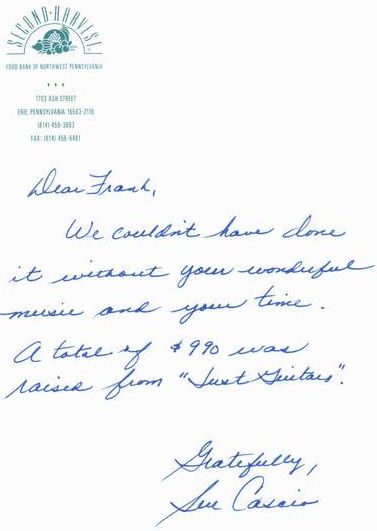 SECOND HARVEST
FOOD BANK OF NORTHWEST PENNSYLVANIA
1703 ASH STREET
ERIE, PENNSYLVANIA 16503-2116
(814) 459-3663
FAX: (814) 456-6481
Dear Frank,
We couldn't have done
it without your wonderful
music and your time.
A total of $990 was
raised from "Just Guitars".
Gratefully,
Sue Cascio